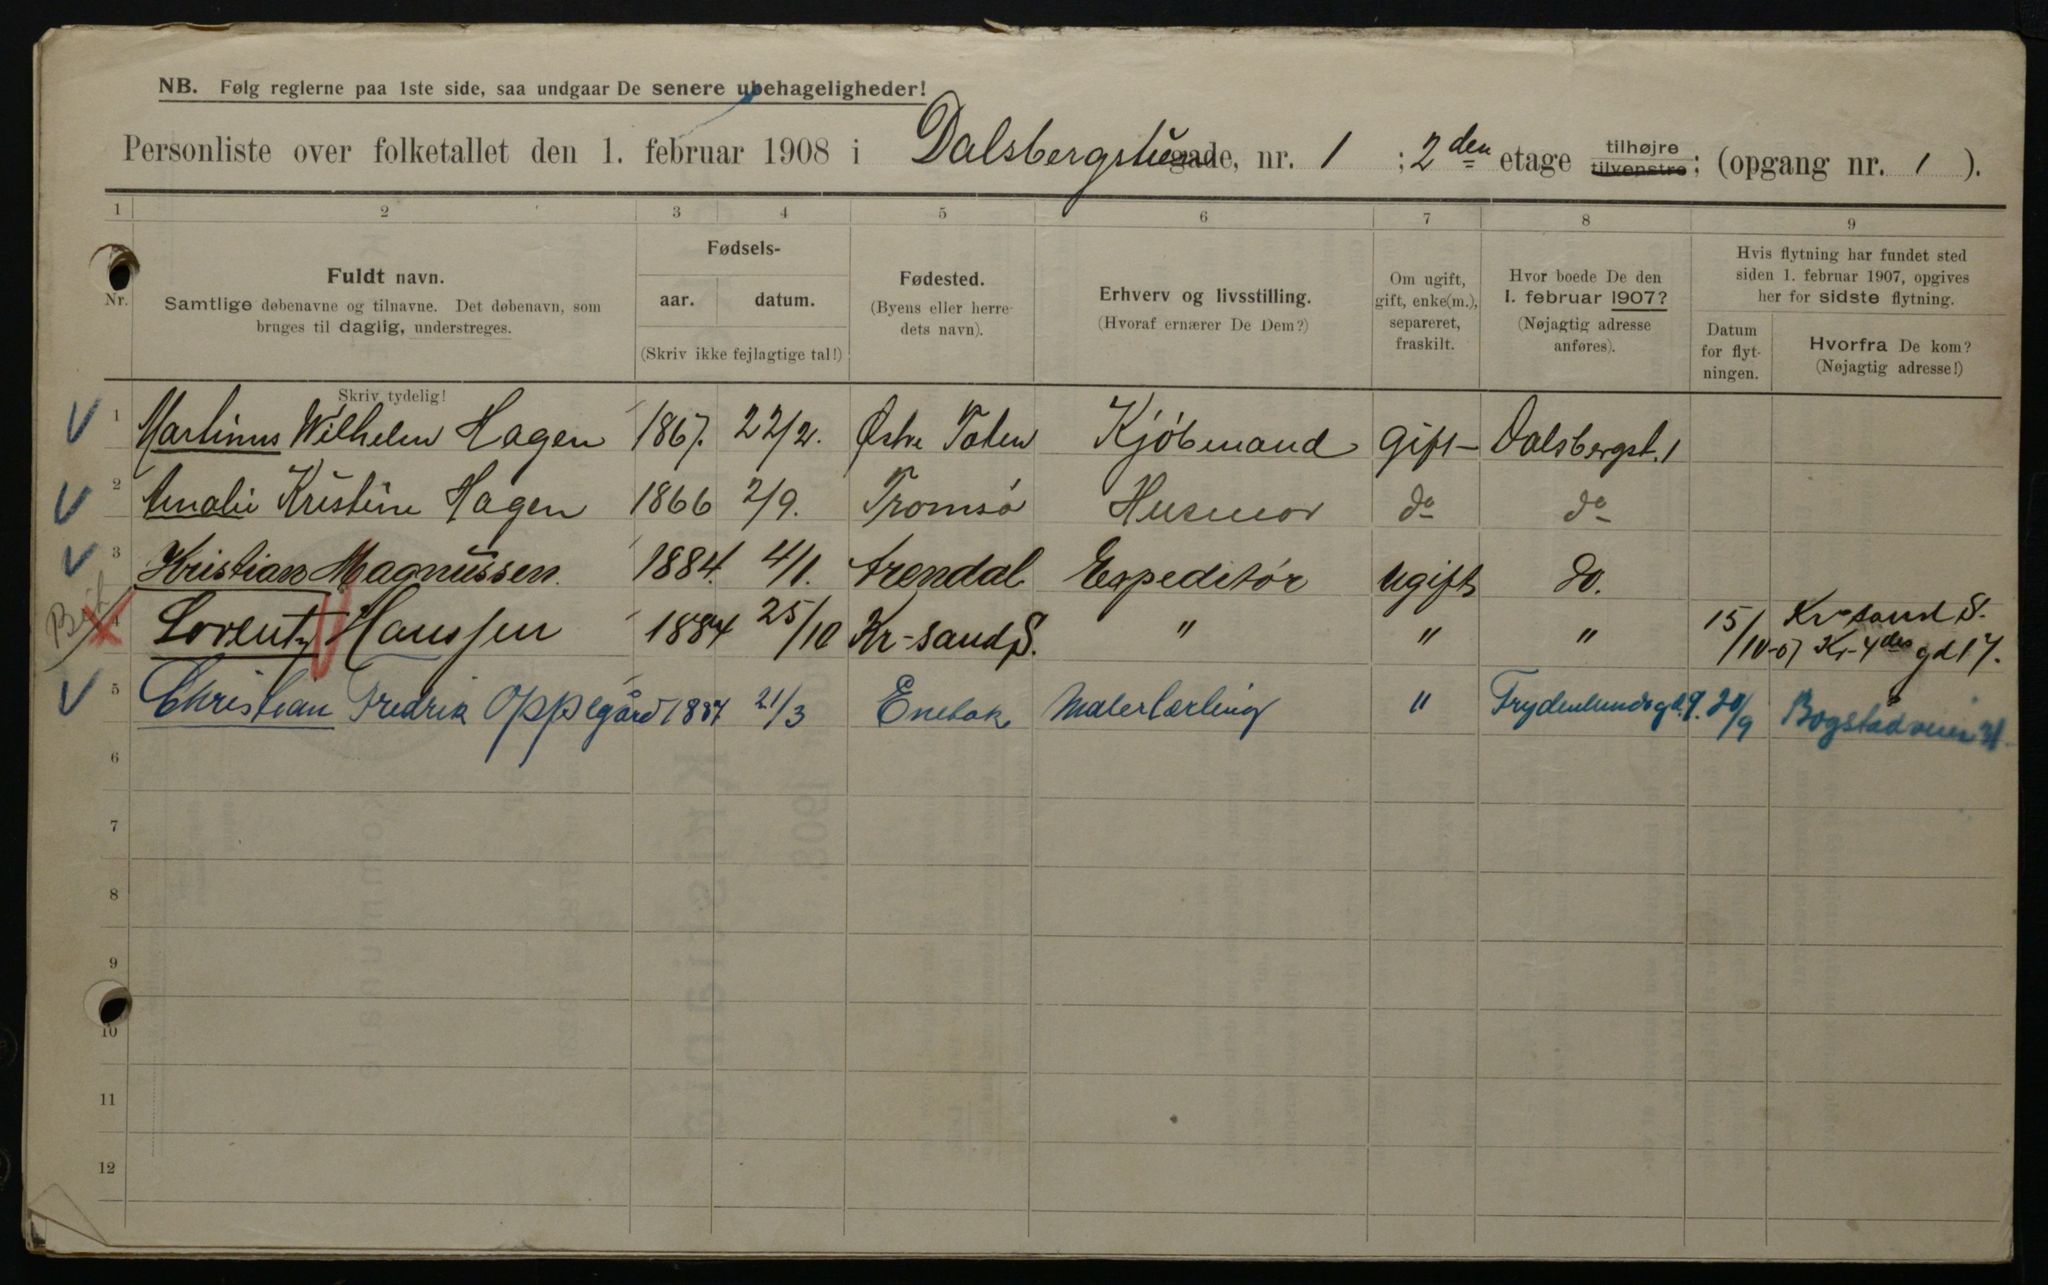 NB. Følg reglerne paa 1ste side, saa undgaar De senere ubehageligheder!
Personliste over folketallet den 1. februar 1908 i Dalsbergstien gade, nr. 1 ; 2den etage tilhøjre tilvenstre; (opgang nr. 1 ).
1 2 3 4 5 6 7 8 9
Nr.
Fuldt navn.
Samtlige døbenavne og tilnavne. Det døbenavn, som
bruges til daglig, understreges.
Skriv tydelig!
Fødsels-
aar. datum.
(Skriv ikke fejlagtige tal!)
Fødested.
(Byens eller herre-
dets navn).
Erhverv og livsstilling.
(Hvoraf ernærer De Dem?)
Om ugift,
gift, enke(m.),
separeret,
fraskilt.
Hvor boede De den
1. februar 1907?
(Nøjagtig adresse
anføres).
Hvis flytning har fundet sted
siden 1. februar 1907, opgives
her for sidste flytning.
Datum
for flyt-
ningen.
Hvorfra De kom?
(Nøjagtig adresse!)
1 Martinus Wilhelm Hagen 1867. 22/2. Østre Toten Kjøbmand Gift Dalsbergst. 1
2 Amalie Kristine Hagen 1866 2/9. Tromsø Husmor do do
3 Kristian Magnussen. 1884. 4/1. Arendal Expeditør Ugift do.
4 Lorentz Hanssen 1884 25/10 Kr-sand S. " " " 15/10-07 Kr-sand S.
Kr. 4des gd 17.
5 Christian Fredrik Oppegård 1887 21/3 Enebak Malerlærling " Frydenlundsgd. 9. 20/9 Bogstadveien 31
6
7
8
9
10
11
12